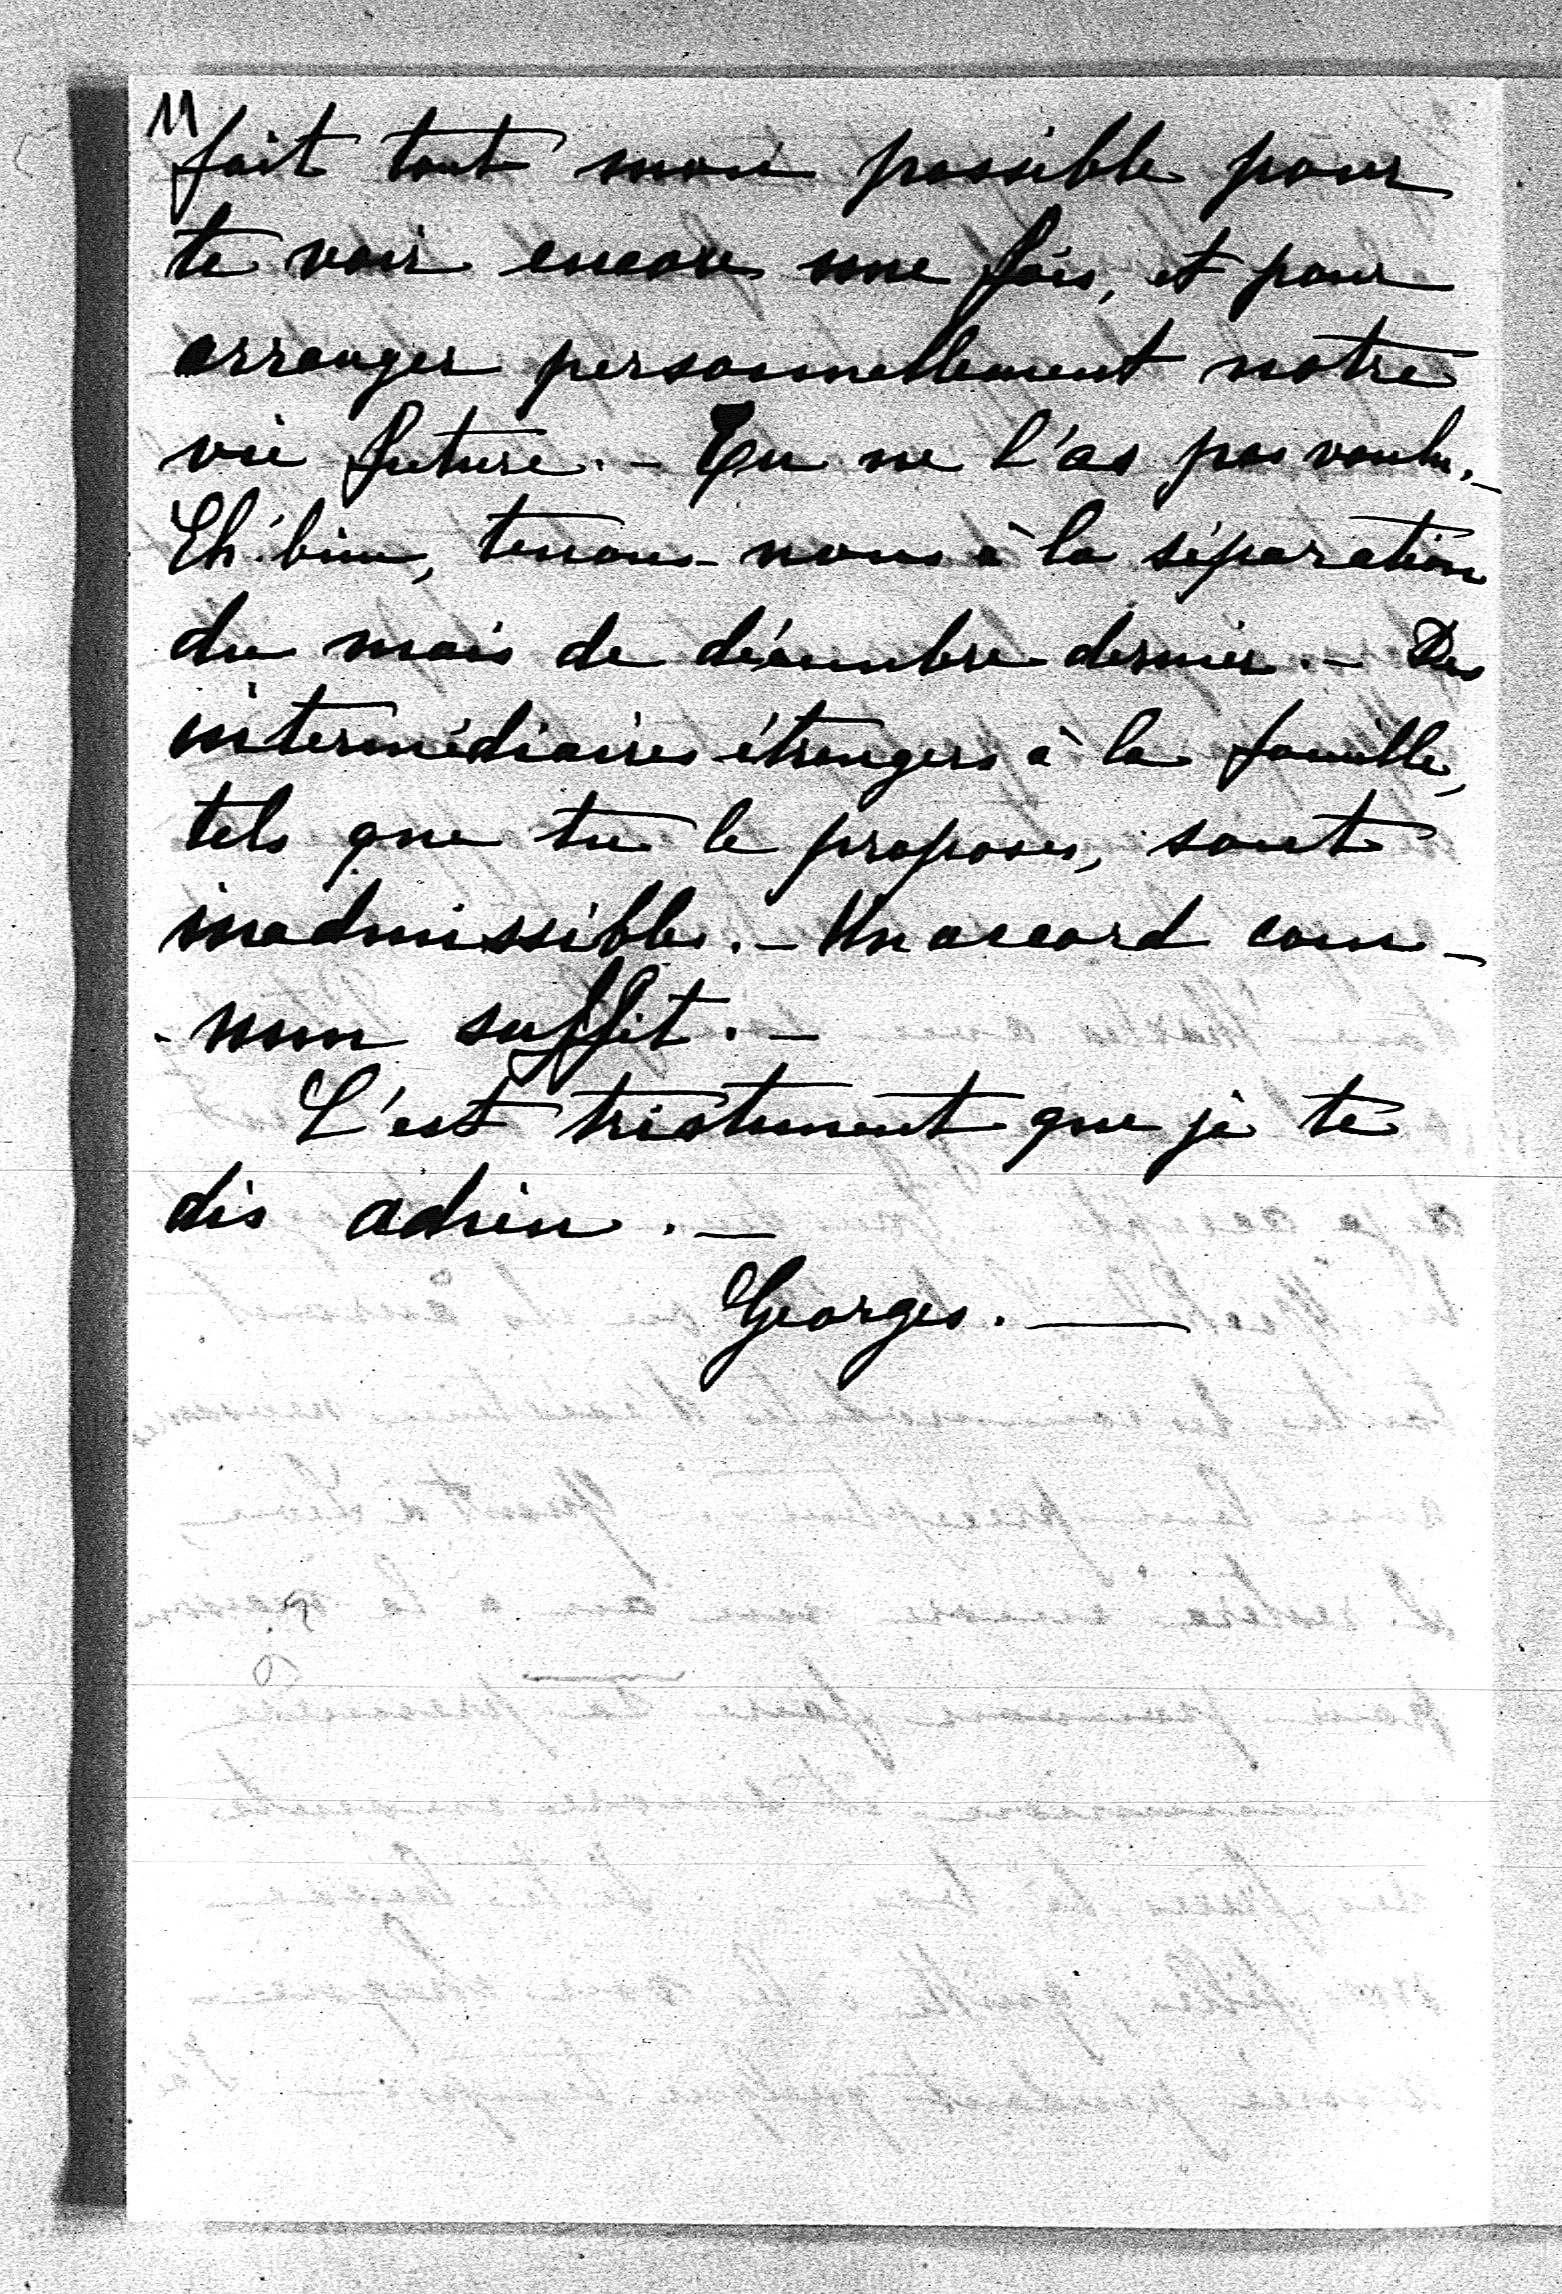 11
fait tout mon possible pour
te voir encore une fois, et pour
arranger personnellement notre
vie future. — Tu ne l'as pas voulu. —
Eh bien, tenons-nous à la séparation
du mois de décembre dernier. — Des
intermédiaires étrangers à la famille,
tels que tu le proposes, sont
inadmissibles. — Un accord com-
-mun suffit. —
C'est tristement que je te
dis adieu. —
Georges. —